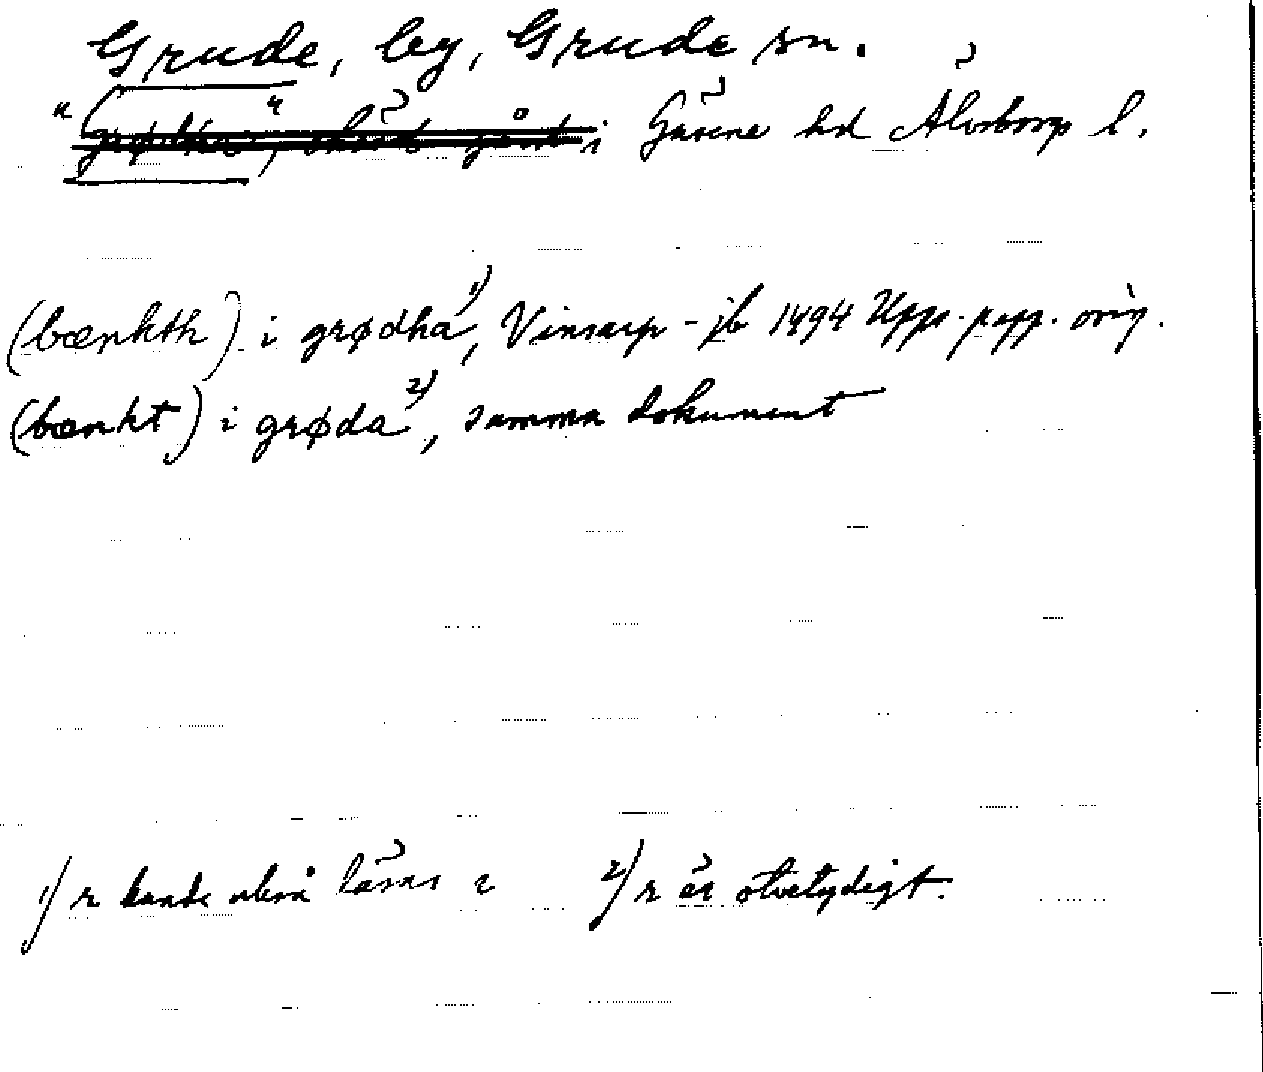 Grude, by, Grude sn.
i Gäsene hd Älvsborg l.
(bænkth) i grødha 1), Vinsarp-jb 1494 Upps. papp. orig.
(bænkt) i grøda 2), samma dokument
1) r kunde även läsas
2) r är otvetydigt.